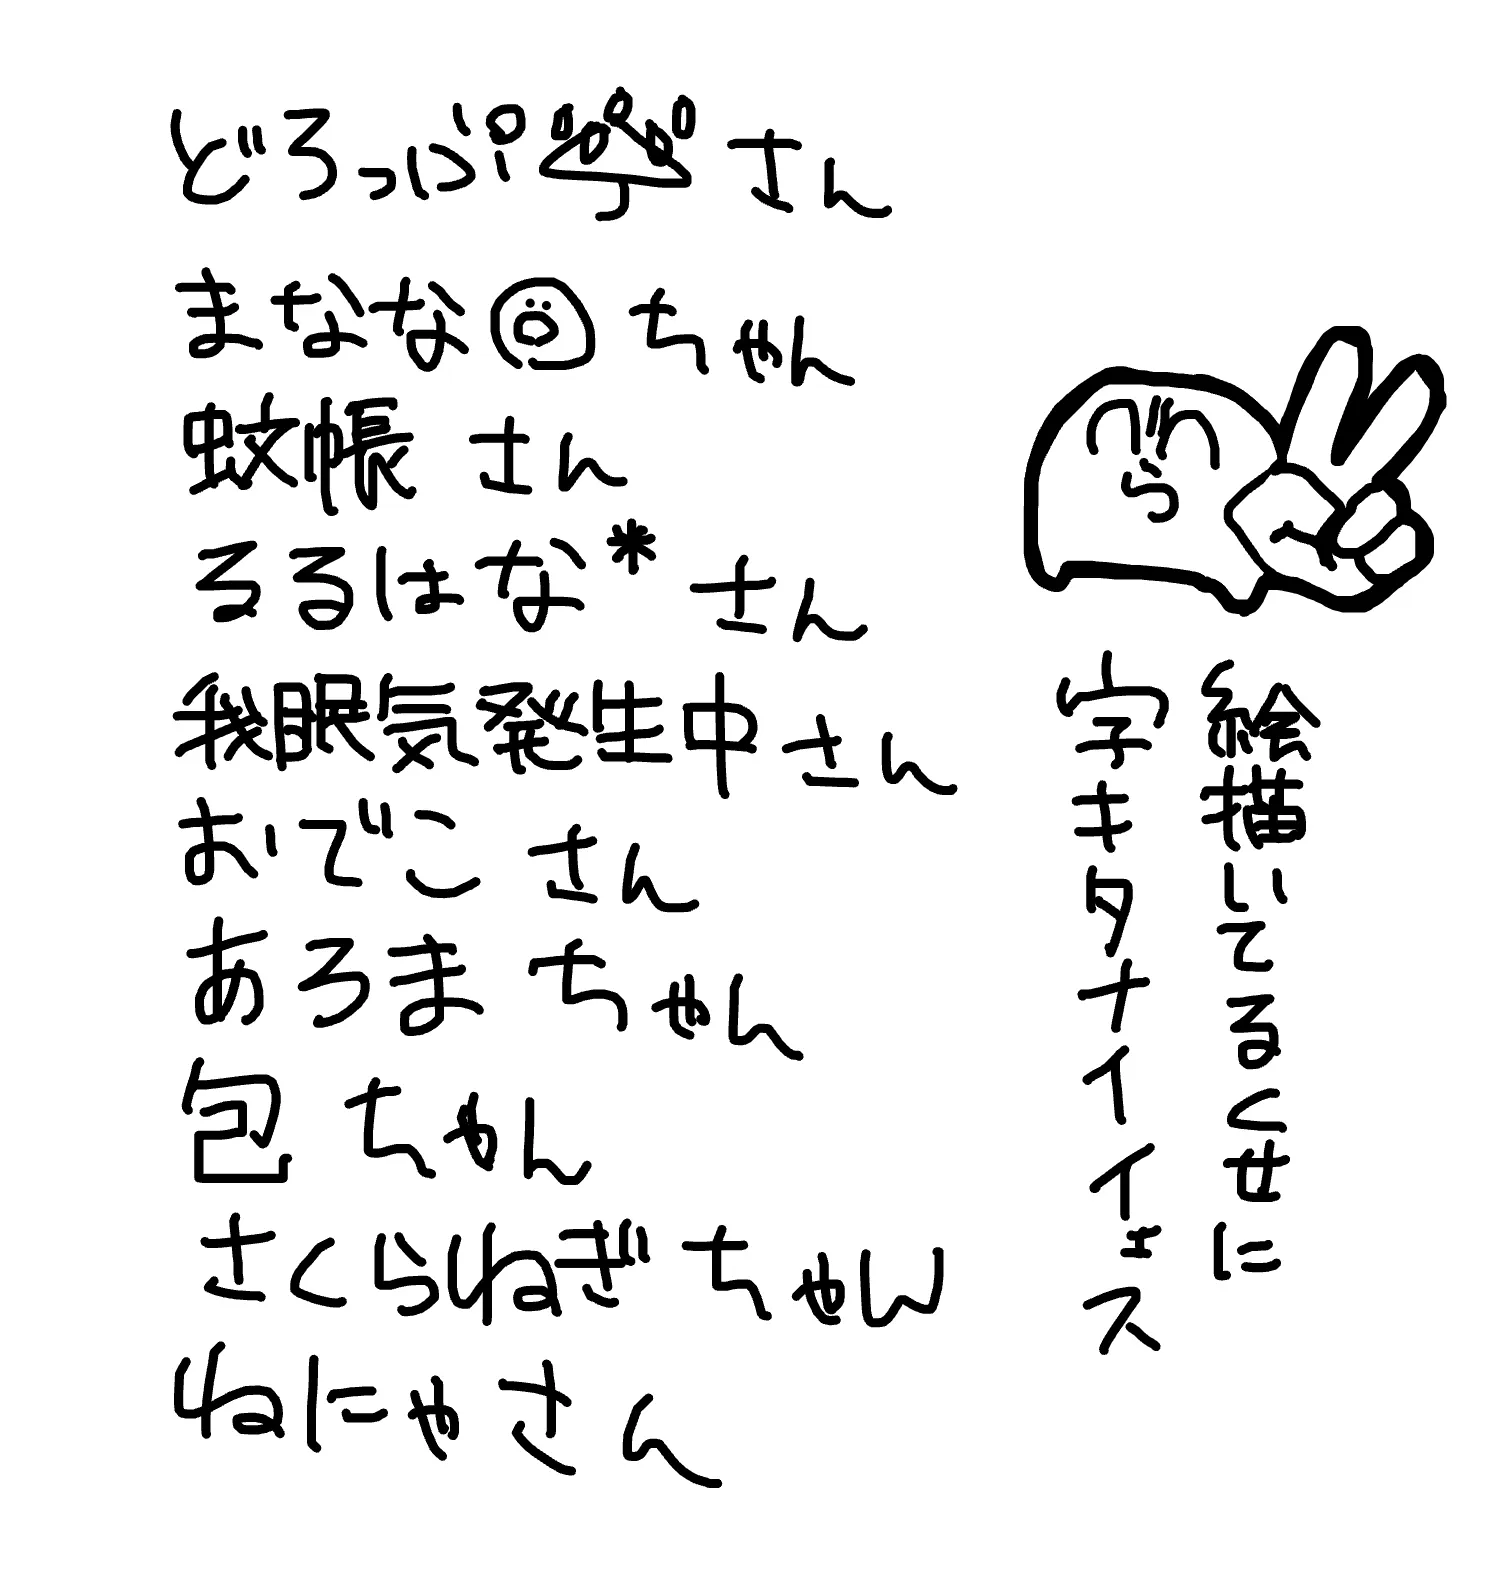 どろっぷ☔さん
まなな ちゃん
蚊帳 さん
るるはな* さん
我眠気発生中さん
おでこ さん
あろま ちゃん
包 ちゃん
さくらねぎ ちゃん
ねにゃさん
絵描いてるくせに
字キタナイイェス